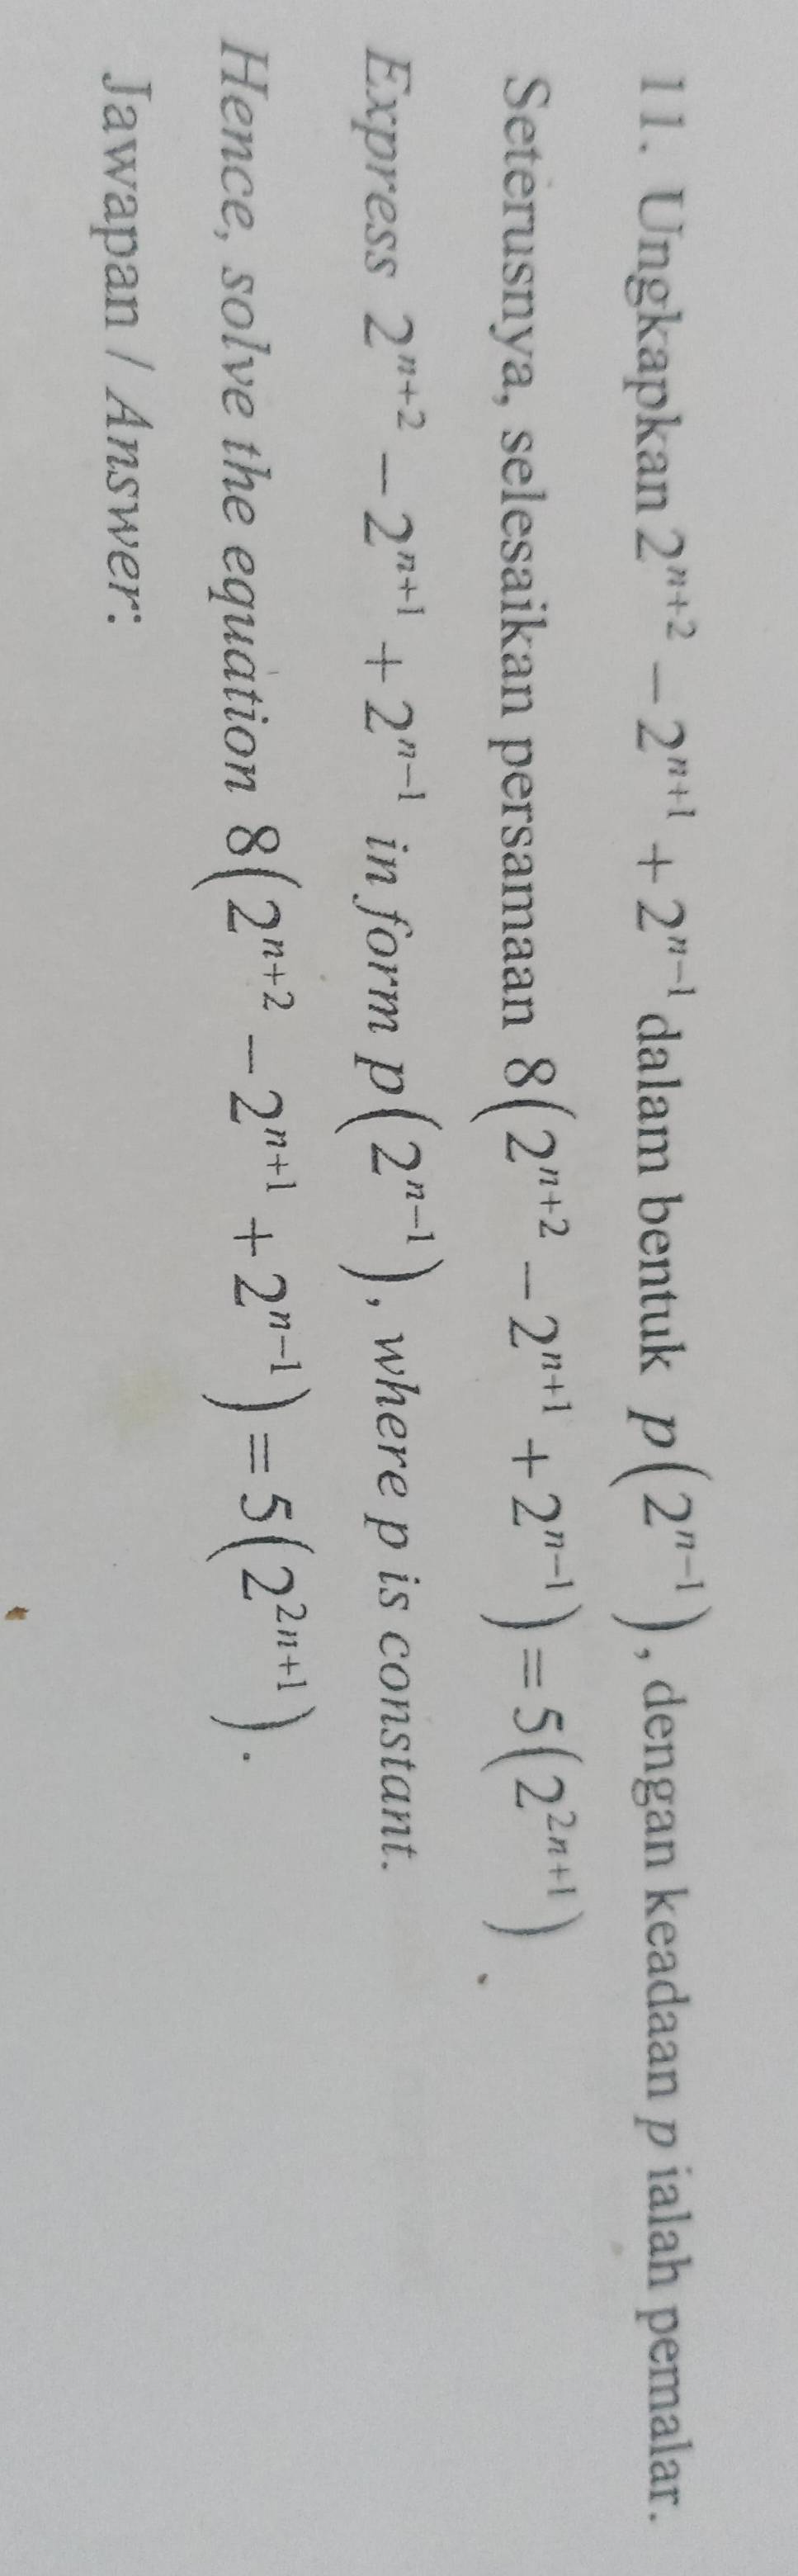 11. Ungkapkan 2ⁿ⁺² − 2ⁿ⁺¹ + 2ⁿ⁻¹ dalam bentuk p(2ⁿ⁻¹), dengan keadaan p ialah pemalar.
Seterusnya, selesaikan persamaan 8(2ⁿ⁺² − 2ⁿ⁺¹ + 2ⁿ⁻¹) = 5(2²ⁿ⁺¹)
Express 2ⁿ⁺² − 2ⁿ⁺¹ + 2ⁿ⁻¹ in form p(2ⁿ⁻¹), where p is constant.
Hence, solve the equation 8(2ⁿ⁺² − 2ⁿ⁺¹ + 2ⁿ⁻¹) = 5(2²ⁿ⁺¹).
Jawapan / Answer: